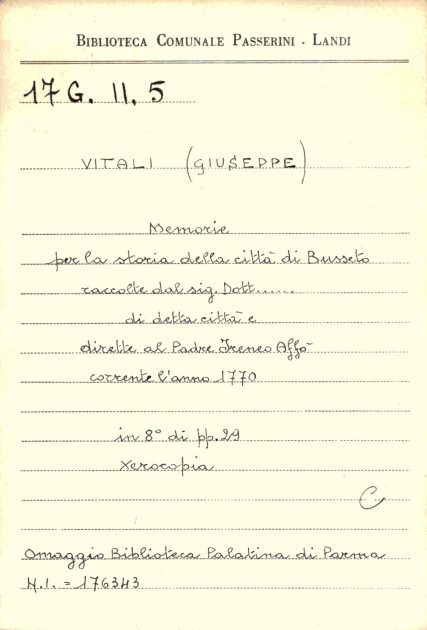 BIBLIOTECA COMUNALE PASSERINI - LANDI
17 G. II. 5
VITALI (GIUSEPPE)
Memorie
per la storia della città di Busseto
raccolte dal sig. Dott......
di detta città e
dirette al Padre Ireneo Affò
corrente l'anno 1770
in 8° di pp. 29
xerocopia
C
Omaggio Biblioteca Palatina di Parma
N.I. = 176343